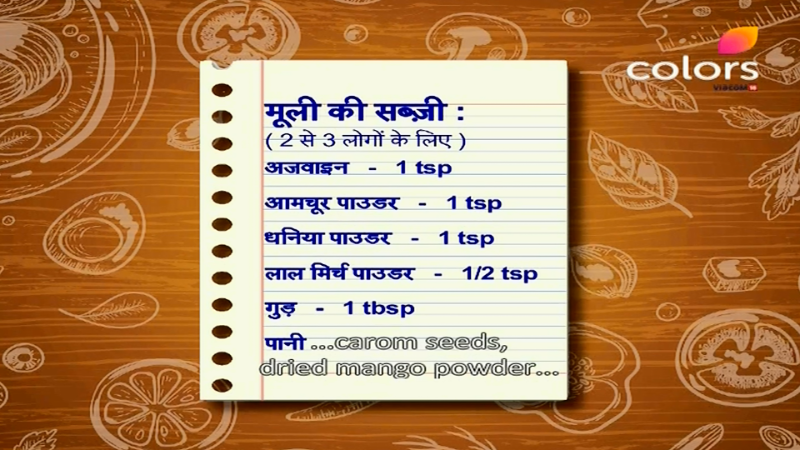 colors
VIACOM 18
मूली की सब्ज़ी :
( 2 से 3 लोगों के लिए )
अजवाइन - 1 tsp
आमचूर पाउडर - 1 tsp
धनिया पाउडर - 1 tsp
लाल मिर्च पाउडर - 1/2 tsp
गुड़ - 1 tbsp
पानी ...carom seeds,
dried mango powder...